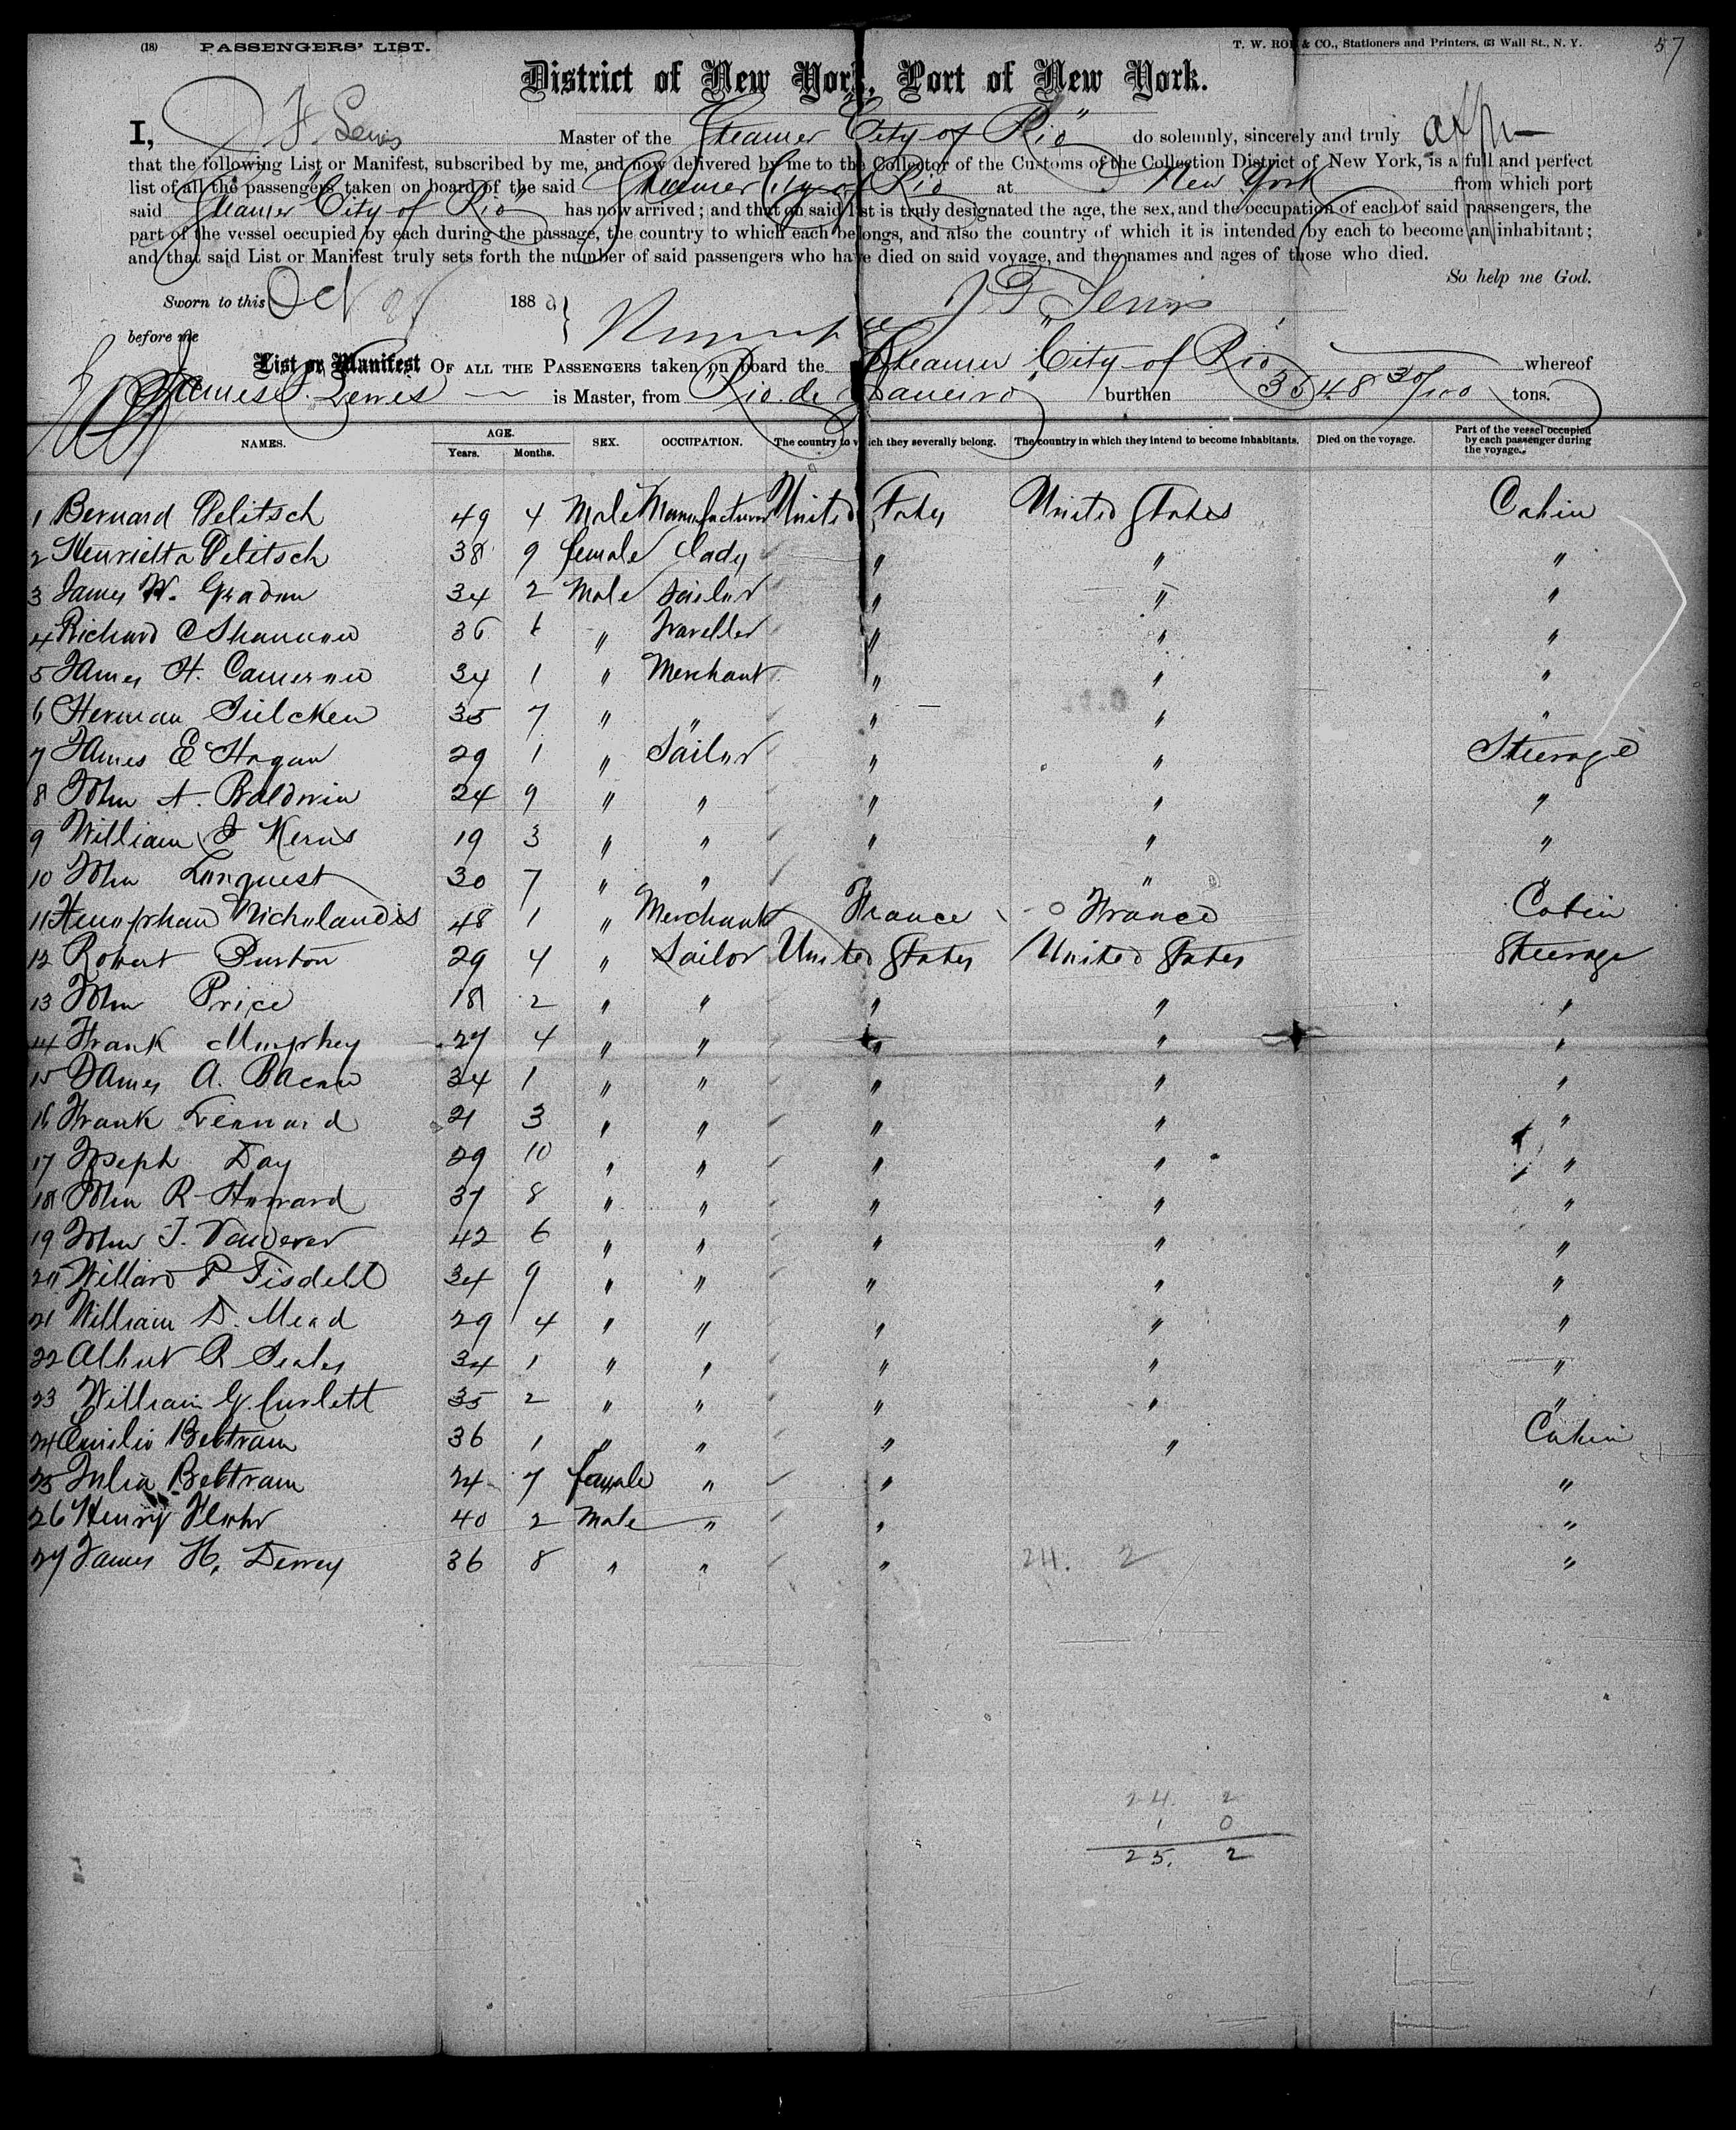 (18) PASSENGERS' LIST. T. W. ROE & CO., Stationers and Printers, 63 Wall St., N. Y. 57
District of New York, Port of New York.
I, J F Lewis Master of the Steamer "City of Rio" do solemnly, sincerely and truly
that the following List or Manifest, subscribed by me, and now delivered by me to the Collector of the Customs of the Collection District of New York, is a full and perfect
list of all the passengers taken on board of the said Steamer City of Rio at New York from which port
said Steamer "City of Rio" has now arrived; and that on said list is truly designated the age, the sex, and the occupation of each of said passengers, the
part of the vessel occupied by each during the passage, the country to which each belongs, and also the country of which it is intended by each to become an inhabitant;
and that said List or Manifest truly sets forth the number of said passengers who have died on said voyage, and the names and ages of those who died.
So help me God.
Sworn to this Oct 188 J F Lewis
before me
List or Manifest OF ALL THE PASSENGERS taken on board the Steamer City of Rio whereof
James F. Lewis is Master, from Rio de Janeiro burthen 3548 30/100 tons.
NAMES. AGE. Years. Months. SEX. OCCUPATION. The country to which they severally belong. The country in which they intend to become inhabitants. Died on the voyage. Part of the vessel occupied by each passenger during the voyage.
1 Bernard Pelitsch 49 4 Male Manufacturer United States United States Cabin
2 Henrietta Pelitsch 38 9 female Lady " " "
3 James W. Gradon 34 2 Male Sailor " " "
4 Richard C Shannon 36 " Traveller " " "
5 James H. Cameron 34 1 " Merchant " " "
6 Herman Sielcken 35 7 " " " " "
7 James E Hogan 29 1 " Sailor " " Steerage
8 John A. Baldwin 24 9 " " " " "
9 William J Kerns 19 3 " " " " "
10 John Lonquest 30 7 " " " " "
11 48 1 " Merchant France France Cabin
12 Robert Burton 29 4 " Sailor United States United States Steerage
13 John Price 18 2 " " " " "
14 Frank Murphey 27 4 " " " " "
15 James A. Bacon 34 1 " " " " "
16 Frank Lennard 21 3 " " " " "
17 Joseph Day 29 10 " " " " "
18 John R Howard 37 8 " " " " "
19 John T. Vandever 42 6 " " " " "
20 Willard P Tisdell 34 9 " " " " "
21 William D. Mead 29 4 " " " " "
22 Albert R Sealey 34 1 " " " " "
23 William G. Curlett 35 2 " " " " "
24 Emilio Beltram 36 1 " " " " Cabin
25 Julia Beltram 24 7 female " " "
26 Henry Flohr 40 2 Male " " "
27 James H. Derrey 36 8 " " " 24. 2 "
24. 2
1 0
25. 2